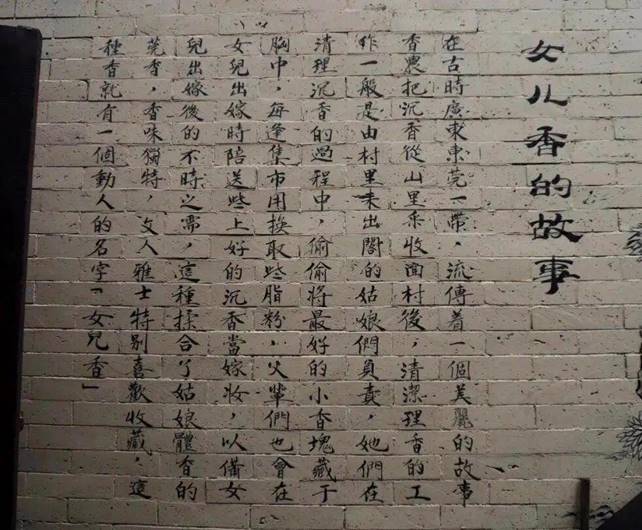 女儿香的故事
在古時廣東東莞一帶，流傳着一個美麗的故事
香農把沉香從山里采收回村後，清潔理香的工
作一般是由村里未出閣的姑娘們負責，她們在
清理沉香的過程中，偷偷將最好的小香塊藏于
胸中，每逢集市用換取些脂粉，父輩們也會在
女兒出嫁時陪送些上好的沉香當嫁妝，以備女
兒出嫁後的不時之需，這種揉合了姑娘體香的
莞香，香味獨特，文人雅士特别喜歡收藏，這
種香就有一個動人的名字「女兒香」